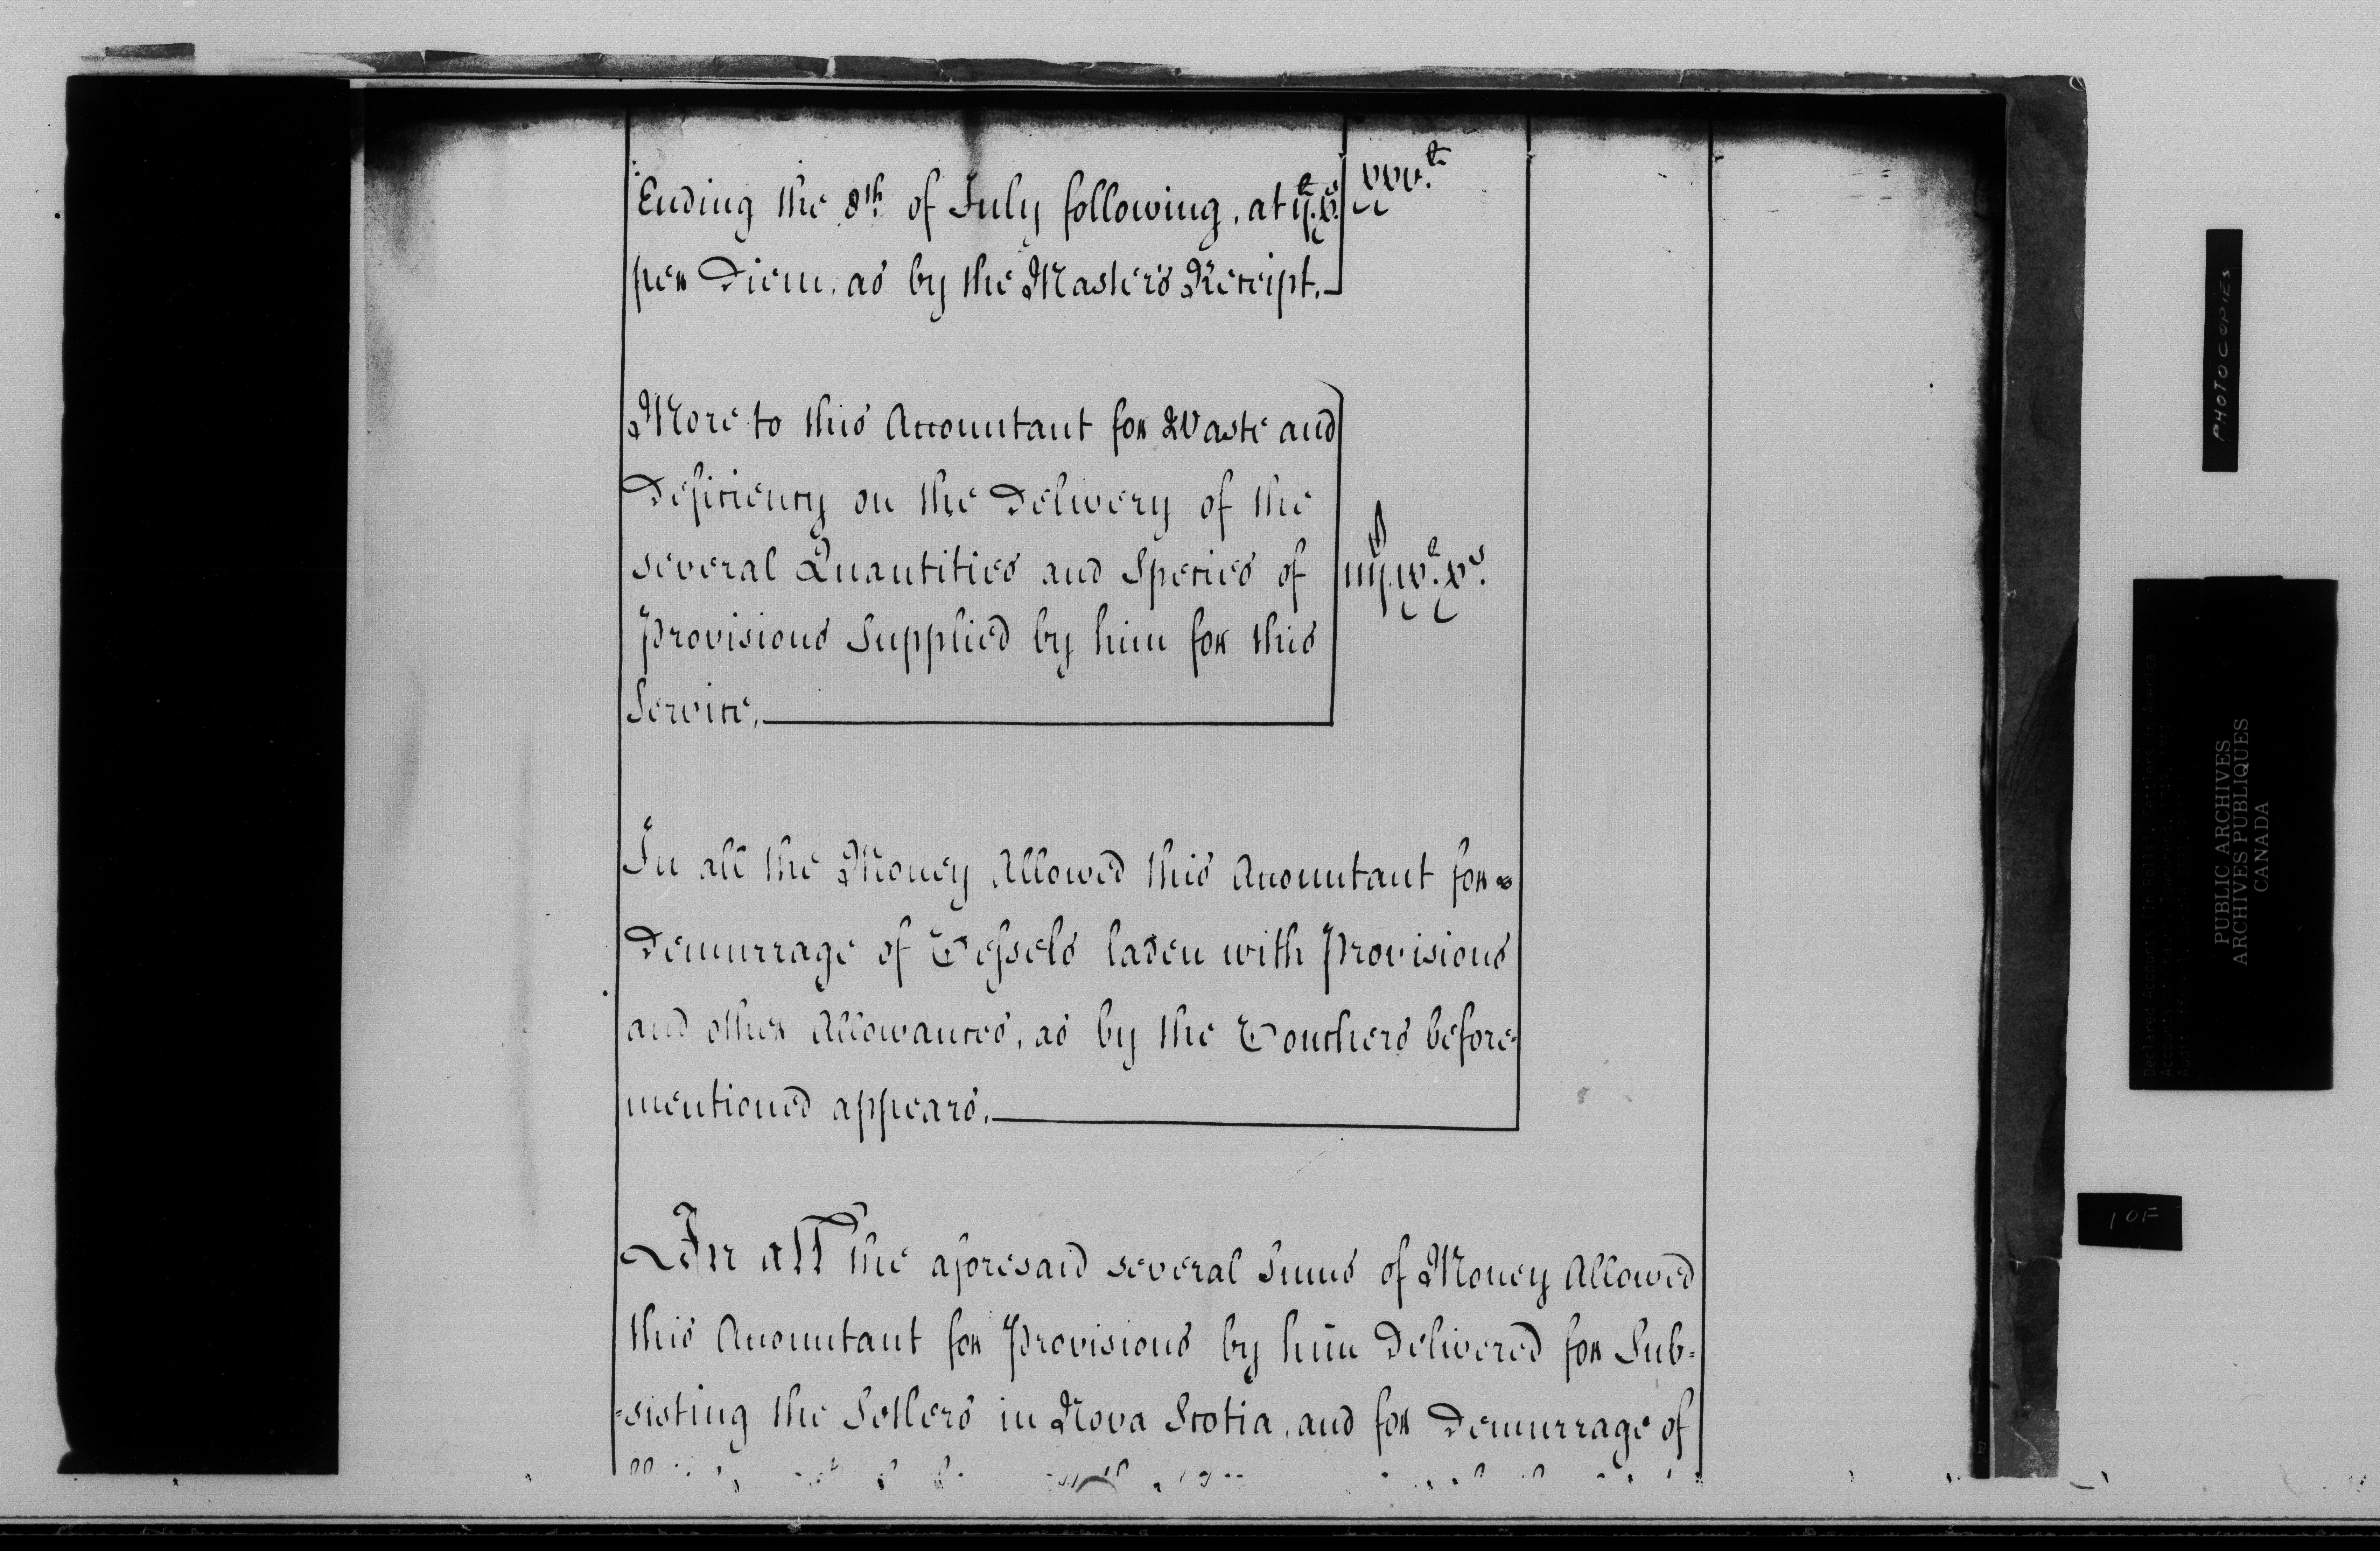 Ending the 8th. of July following, at
xxv.
per Diem, as by the Master's Receipt.
More to this Accountant for Waste and
Deficiency on the Delivery of the
several Quantities and Species of
Provisions Supplied by him for this
Service.
In all the Money Allowed this Accountant for
Demurrage of Vessels laden with Provisions
and other Allowances, as by the Vouchers before=
mentioned appears.
In all The aforesaid several Sums of Money Allowed
this Accountant for Provisions by him Delivered for Sub=
=sisting the Setlers in Nova Scotia, and for Demurrage of
PHOTOCOPIES
PUBLIC ARCHIVES
ARCHIVES PUBLIQUES
CANADA
10F